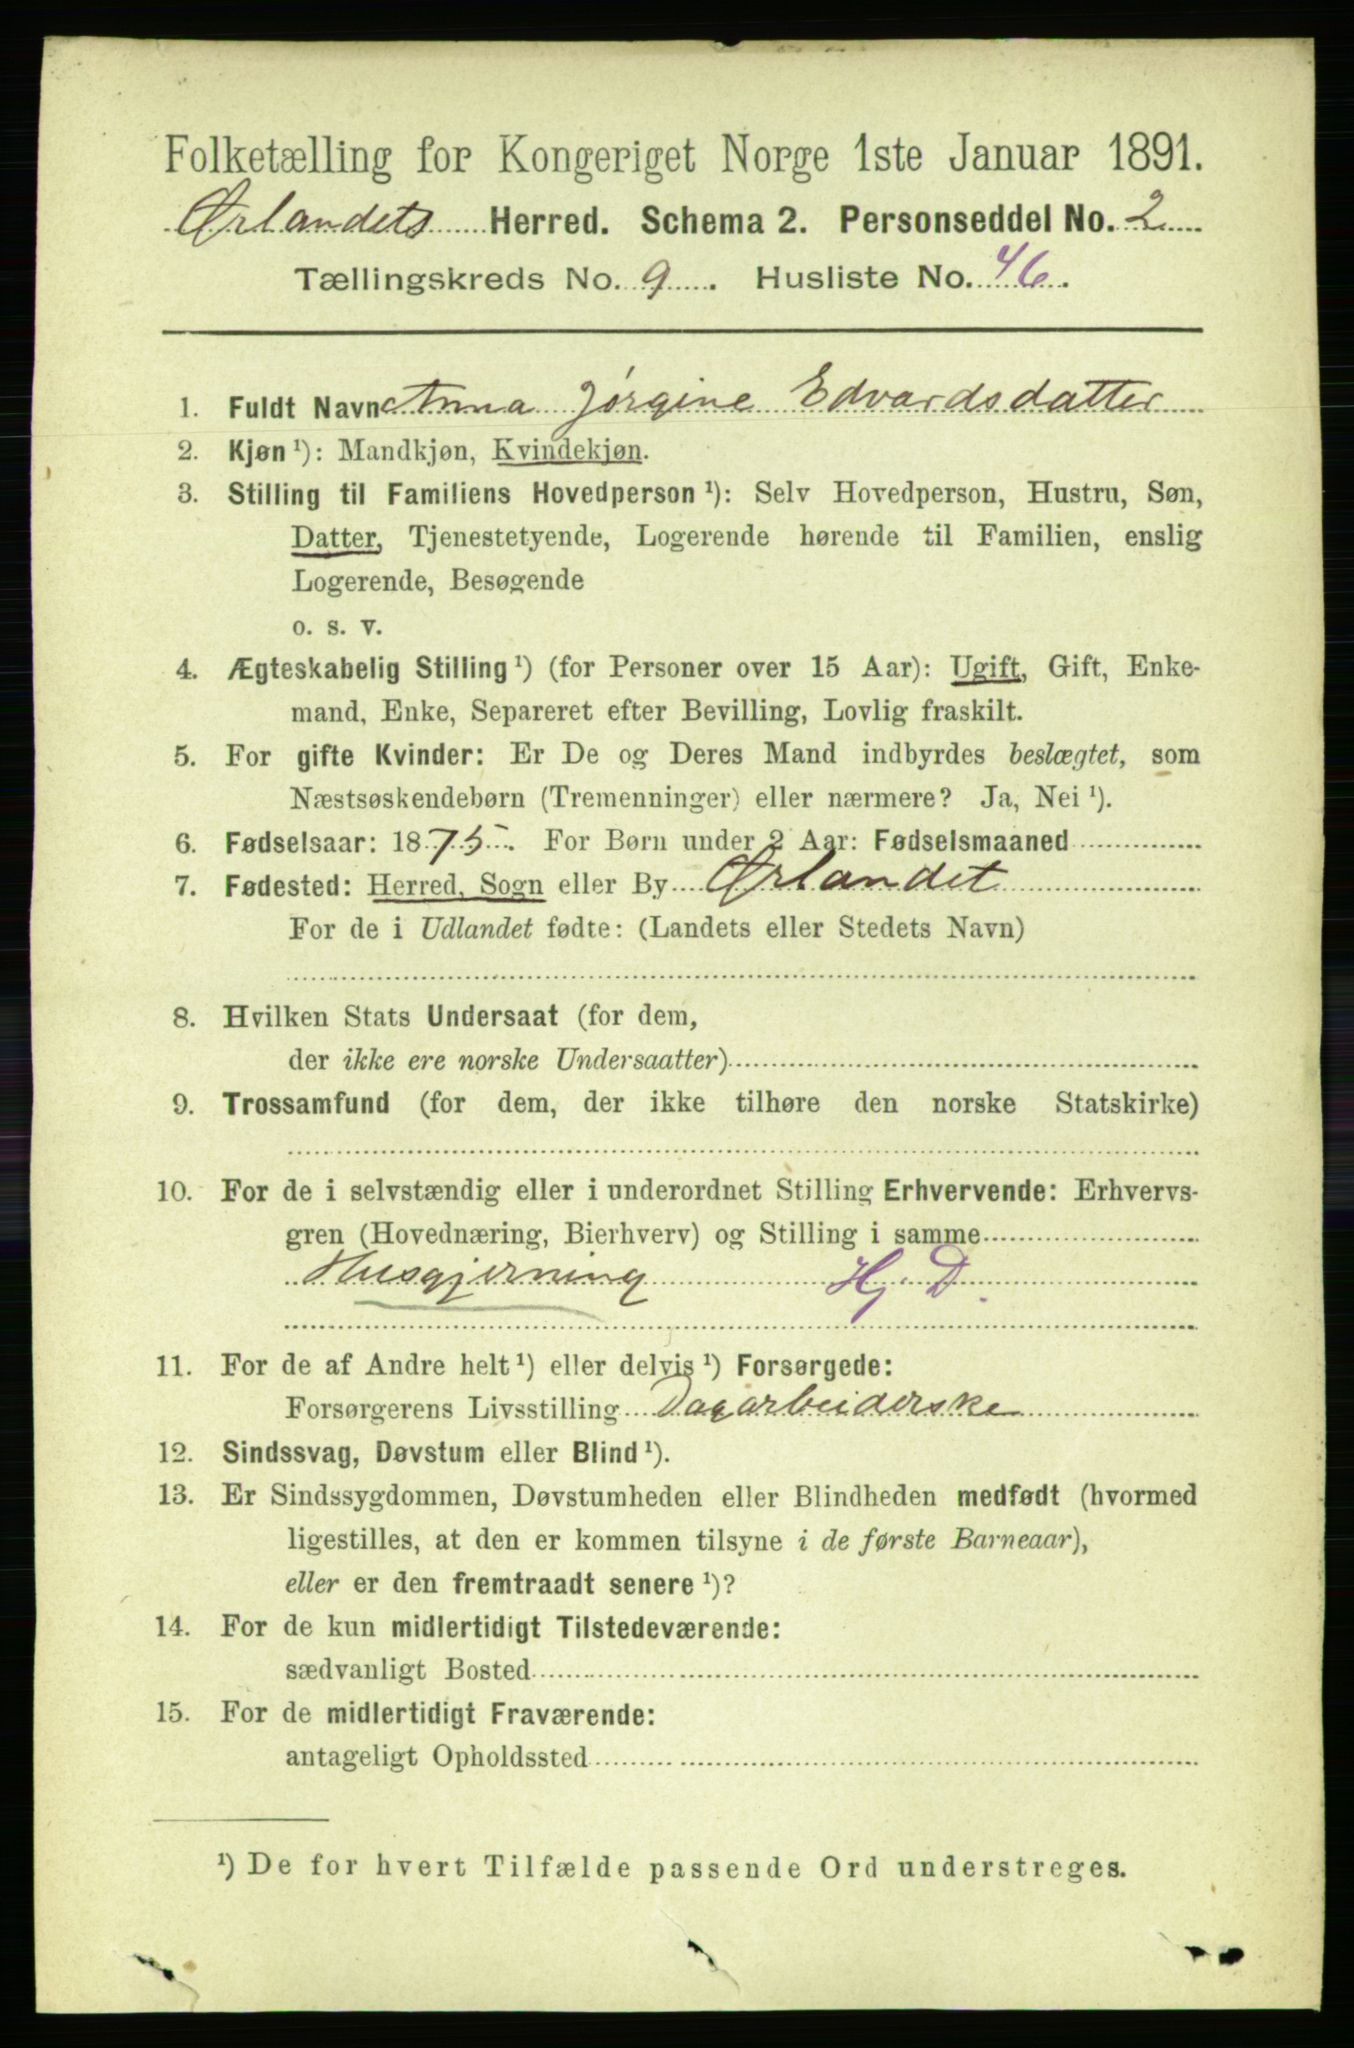 Folketælling for Kongeriget Norge 1ste Januar 1891.
Ørlandets Herred. Schema 2. Personseddel No. 2
Tællingskreds No. 9. Husliste No. 46.
1. Fuldt Navn Anna Jørgine Edvardsdatter
2. Kjøn ¹): Mandkjøn, Kvindekjøn.
3. Stilling til Familiens Hovedperson ¹): Selv Hovedperson, Hustru, Søn,
Datter, Tjenestetyende, Logerende hørende til Familien, enslig
Logerende, Besøgende
o. s. v.
4. Ægteskabelig Stilling ¹) (for Personer over 15 Aar): Ugift, Gift, Enke-
mand, Enke, Separeret efter Bevilling, Lovlig fraskilt.
5. For gifte Kvinder: Er De og Deres Mand indbyrdes beslægtet, som
Næstsøskendebørn (Tremenninger) eller nærmere? Ja, Nei ¹).
6. Fødselsaar: 1875. For Børn under 2 Aar: Fødselsmaaned
7. Fødested: Herred, Sogn eller By Ørlandet
For de i Udlandet fødte: (Landets eller Stedets Navn)
8. Hvilken Stats Undersaat (for dem,
der ikke ere norske Undersaatter)
9. Trossamfund (for dem, der ikke tilhøre den norske Statskirke)
10. For de i selvstændig eller i underordnet Stilling Erhvervende: Erhvervs-
gren (Hovednæring, Bierhverv) og Stilling i samme
Husgjerning Hj. D.
11. For de af Andre helt ¹) eller delvis ¹) Forsørgede:
Forsørgerens Livsstilling Dagarbeiderske
12. Sindssvag, Døvstum eller Blind ¹).
13. Er Sindssygdommen, Døvstumheden eller Blindheden medfødt (hvormed
ligestilles, at den er kommen tilsyne i de første Barneaar),
eller er den fremtraadt senere ¹)?
14. For de kun midlertidigt Tilstedeværende:
sædvanligt Bosted
15. For de midlertidigt Fraværende:
antageligt Opholdssted
¹) De for hvert Tilfælde passende Ord understreges.